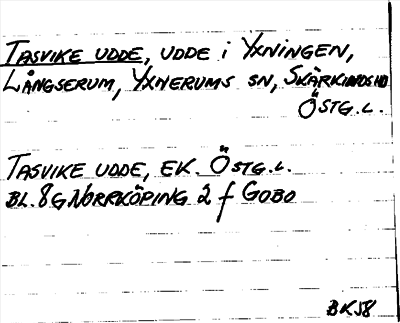 TASVIKE UDDE, UDDE i YXNINGEN,
LÅNGSERUM, YXNERUMS SN, SKÄRKINDS HD
ÖSTG.L.
TASVIKE UDDE, EK. ÖSTG.L.
BL. 8G NORRKÖPING 2 f GOBO
BK58